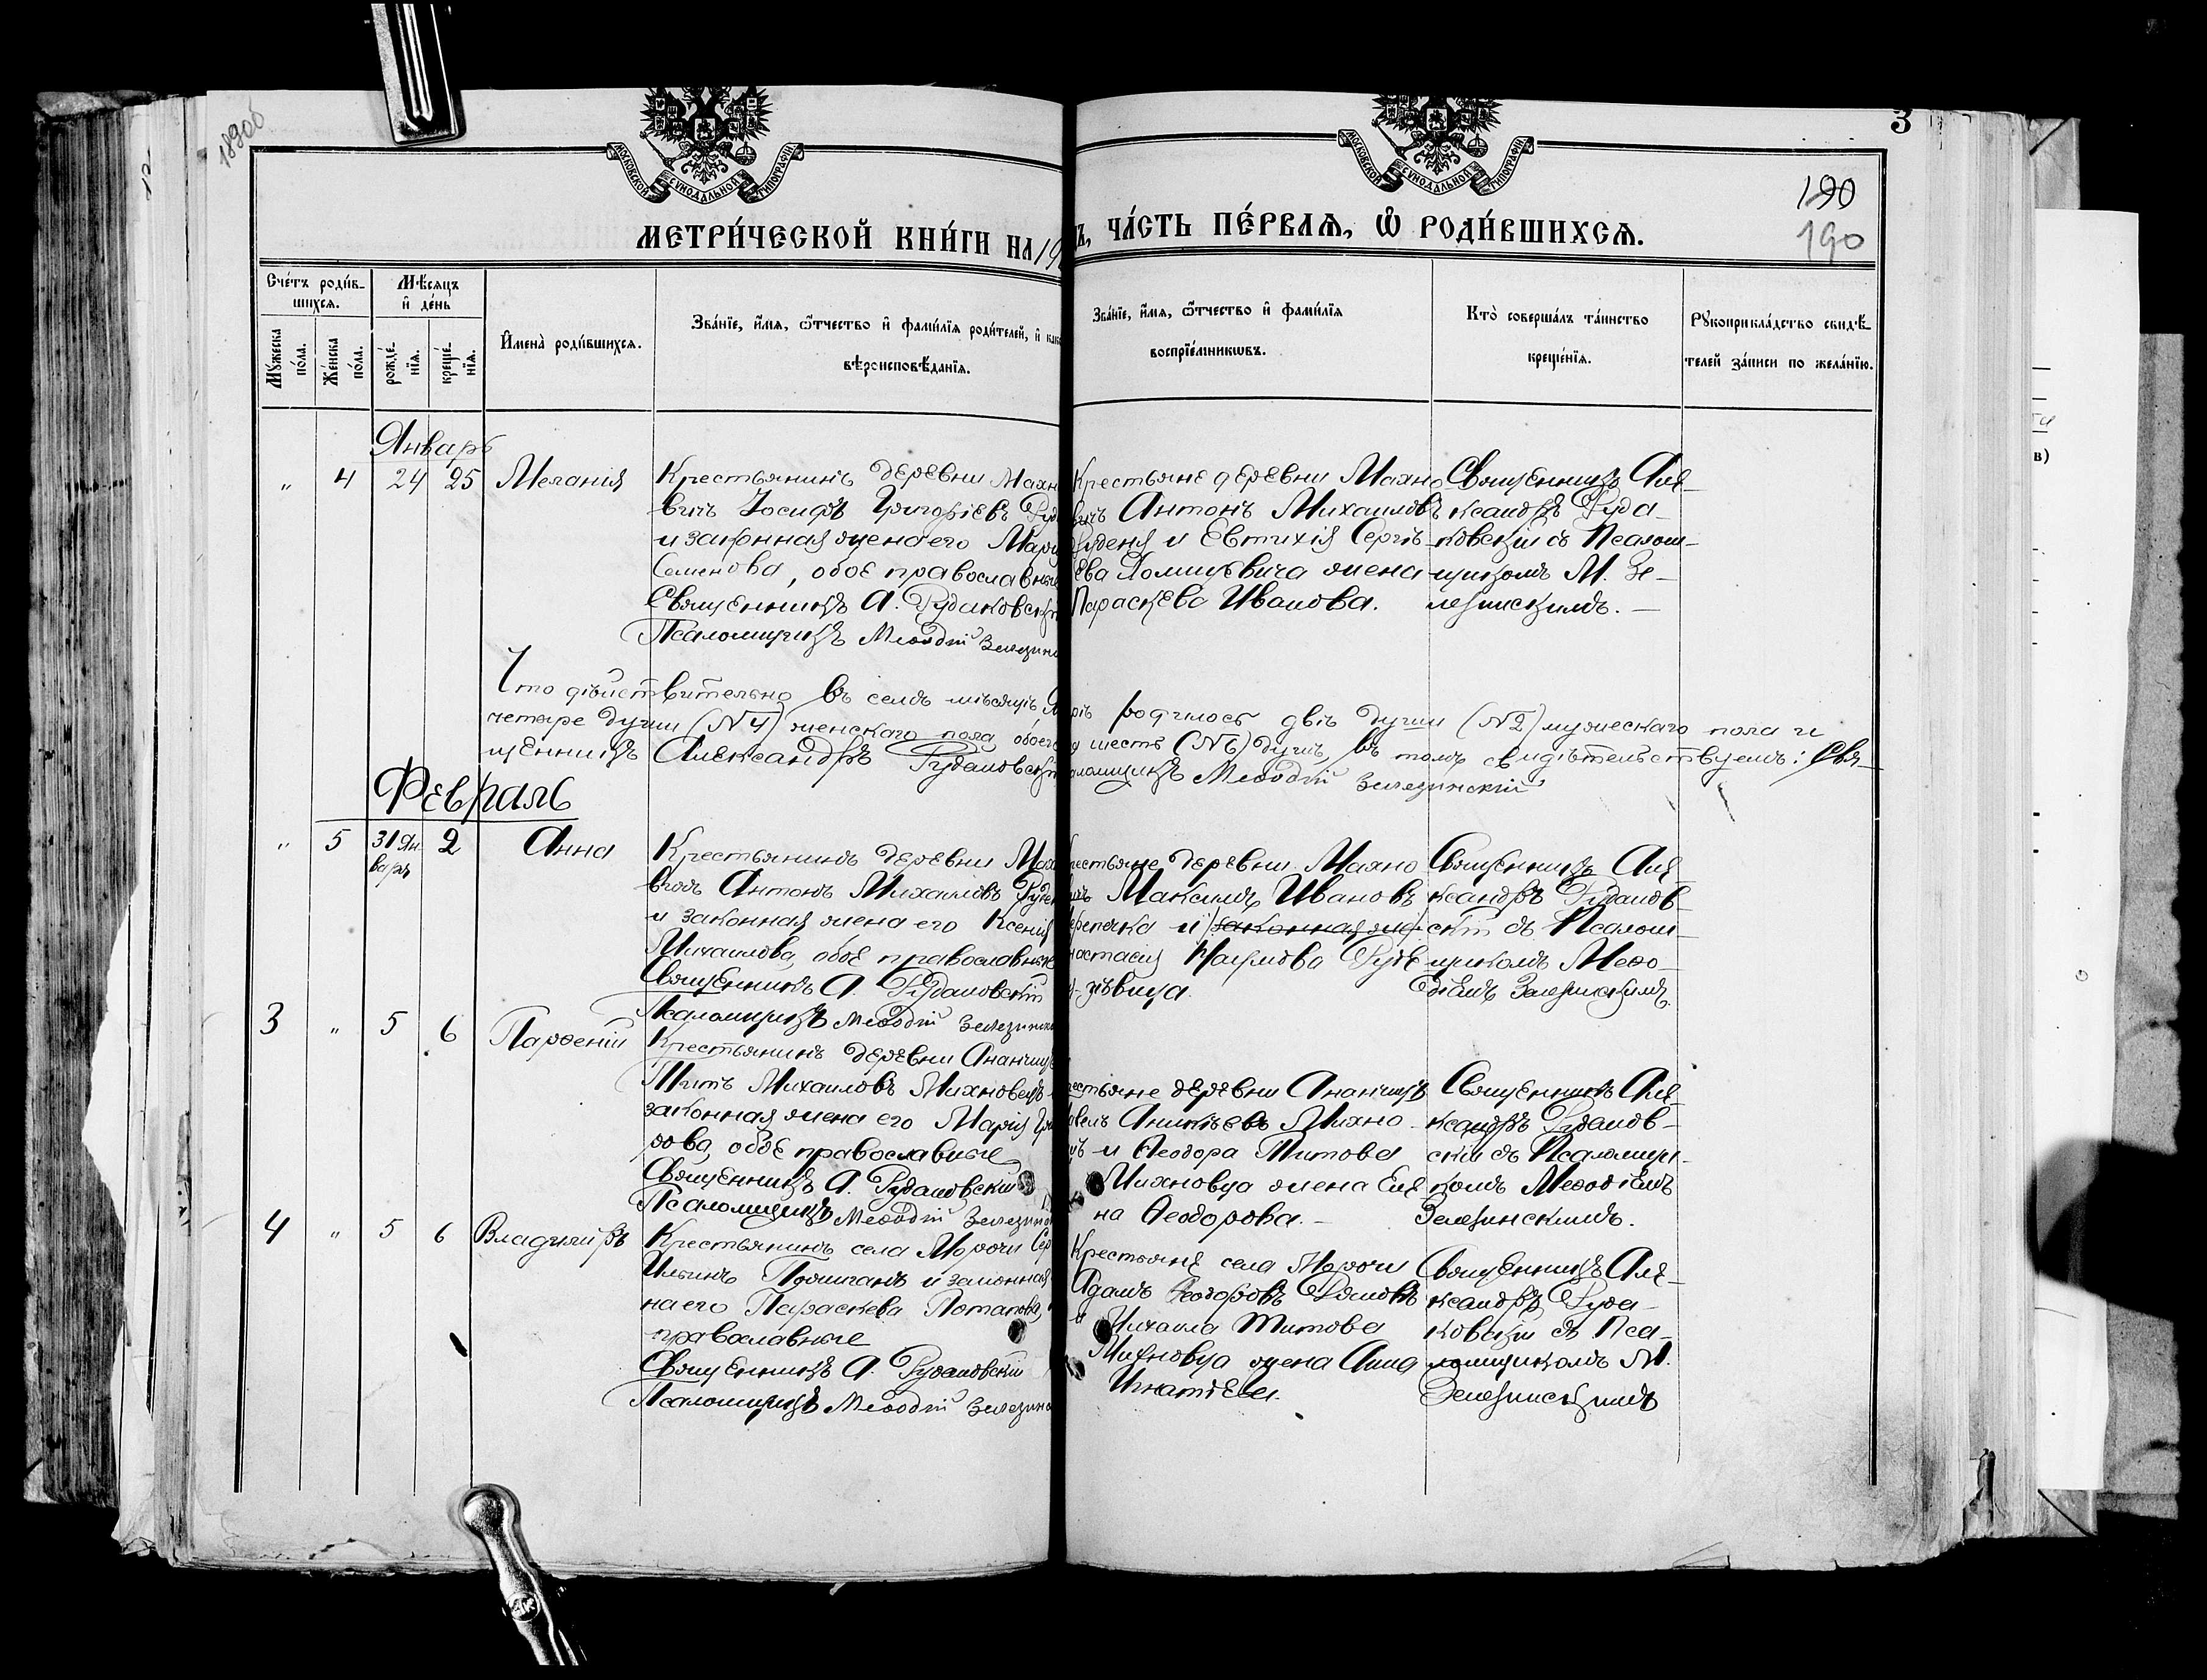 18900
3
МОСКОВСКОЙ СѴНОДАЛЬНОЙ ТИПОГРАФІИ
МОСКОВСКОЙ СѴНОДАЛЬНОЙ ТИПОГРАФІИ
190
190
МЕТРИ́ЧЕСКОЙ КНИ́ГИ НА 19
Ъ, ЧА́СТЬ ПЕ́РВАѦ, Ѡ РОДИ́ВШИХСѦ.
Сче́тъ роди́в-
шихсѧ.
Мѣ́сѧцъ
и҆ де́нь
Мꙋ́жеска
по́ла.
Же́нска
по́ла.
рожде́-
нїѧ.
креще́-
нїѧ.
И҆мена̀ роди́вшихсѧ.
Зва́нїе, и҆́мѧ, ѻ҆́тчество и҆ фами́лїѧ роди́телей, и҆
вѣроисповѣ́данїѧ.
Зва́нїе, и҆́мѧ, ѻ҆́тчество и҆ фами́лїѧ
воспрїе́мникѡвъ.
Кто̀ соверша́лъ та́инство
креще́нїѧ.
Рꙋкоприкла́дство свидѣ́-
телей за́писи по жела́нїю.
Январь
„ 4 24 25 Меланія
Крестьянинъ деревни Махн
вичъ Іосифъ Григоріевъ Руд
и законная жена его Марі
Семенова, обое православные
Священникъ А. Рудаковскі
Псаломщикъ Меѳодій Зелезинс
Крестьяне деревни Махно
вичъ Антонъ Михаиловъ
Руденя и Евтихія Сергѣ-
ева жена
Параскева Иванова.
Священникъ Але-
ксандръ Руда-
ковскій съ Псалом-
щикомъ М. Зе-
лезинскимъ. —
Что дѣйствительно въ семъ мѣсяцѣ
рѣ родилось двѣ души (№2) мужескаго пола и
четыре души (№4) женскаго пола, обоего
а шесть (№6) душъ, въ томъ свидѣтельствуемъ: Свя-
щенникъ Александръ Рудаковскі
аломщикъ Меѳодій Зелезинскій
Февраль
„ 5 31 Ян- 2 Анна
варь
Крестьянинъ деревни Мах
вичъ Антонъ Михаиловъ Руден
и законная жена его Ксенія
Михаилова, обое православные
Священникъ А. Рудаковскій
Псаломщикъ Меѳодій Зелезинск
рестьяне деревни Махно
ичъ Максимъ Ивановъ
и законная же-
настасія Наумова Руде
я - дѣвица.
Священникъ Але-
ксандръ Рудаков-
скій съ Псалом-
щикомъ Меѳо-
діемъ Зелезинскимъ.
3 „ 5 6 Парѳеній
Крестьянинъ деревни Ананчиц
Титъ Михаиловъ Михновецъ
законная жена его Марія
рова, обое православные
Священникъ А. Рудаковскій
Псаломщикъ Меѳодій Зелезинс
рестьяне деревни Ананчицъ
авелъ Аникіевъ Михно-
цъ и Ѳеодора Титова
Михновца жена Еле
на Ѳеодорова. —
Священникъ Але-
ксандръ Рудаков-
скій съ Псаломщи-
комъ Меѳодіемъ
Зелезинскимъ.
4 „ 5 6 Владиміръ
Крестьянинъ села Морочи Сер
Ильинъ и законная
на его Параскева Потапова,
православные
Священникъ А. Рудаковскій
Псаломщикъ Меѳодій Зелезинс
Крестьяне села Морочи
Адамъ Ѳеодоровъ
и Михаила Титова
Михновца жена Анна
Игнатіева.
Священникъ Але-
ксандръ Руда-
ковскій съ Пса-
ломщикомъ М.
Зелезинскимъ